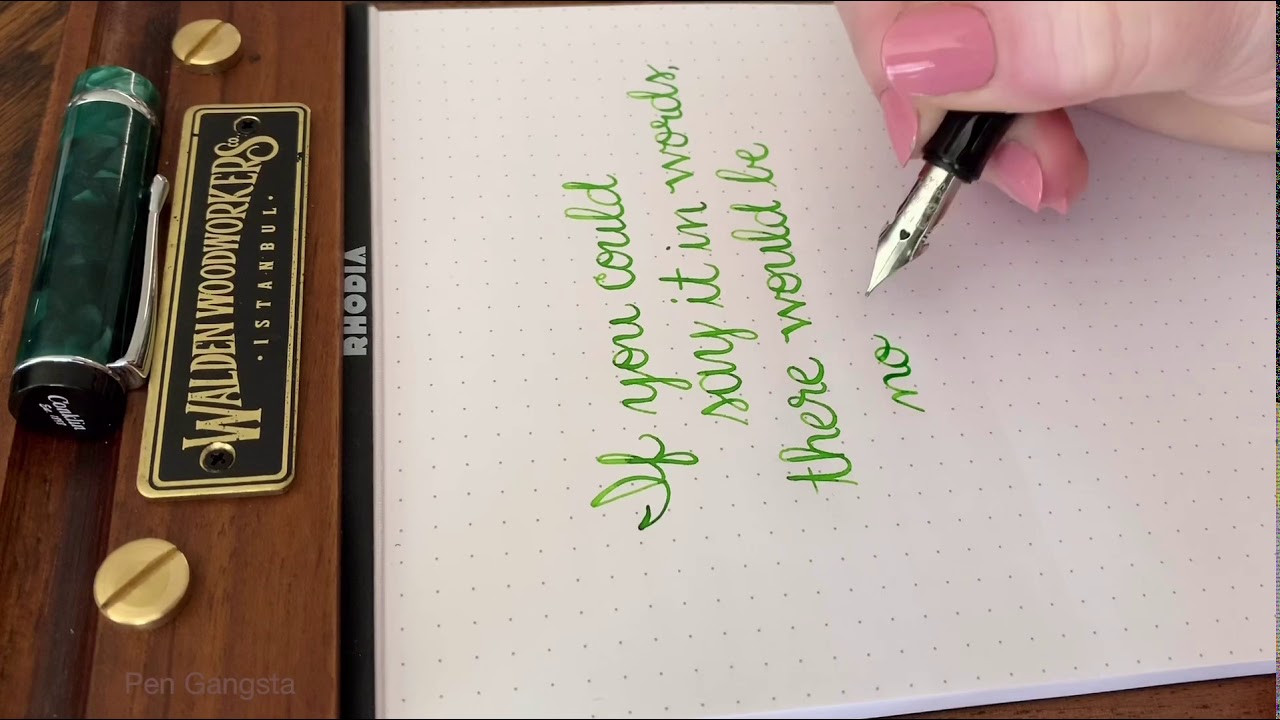 Conklin
Est. 1898
WALDEN WOODWORKERS Co
• ISTANBUL •
RHODIA
If you could
say it in words,
there would be
no
Pen Gangsta